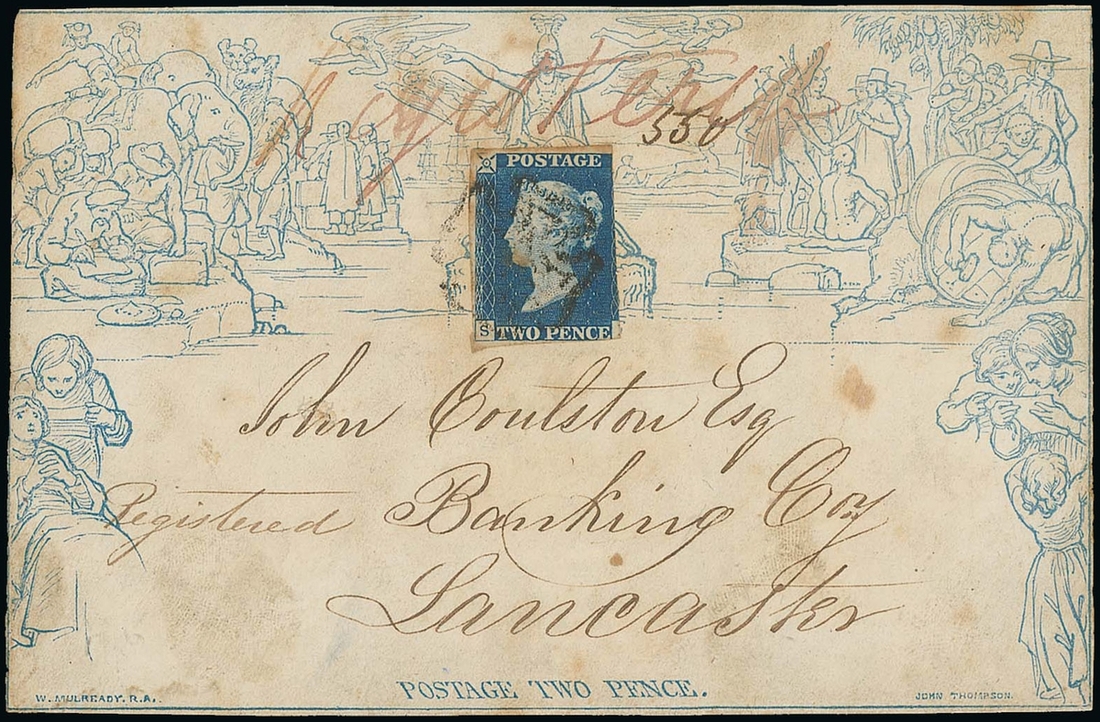 Registered
550
POSTAGE
S
TWO PENCE
John Coulston Esq
Registered Banking Coy
Lancaster
POSTAGE TWO PENCE.
W. MULREADY. R.A.
JOHN THOMPSON.